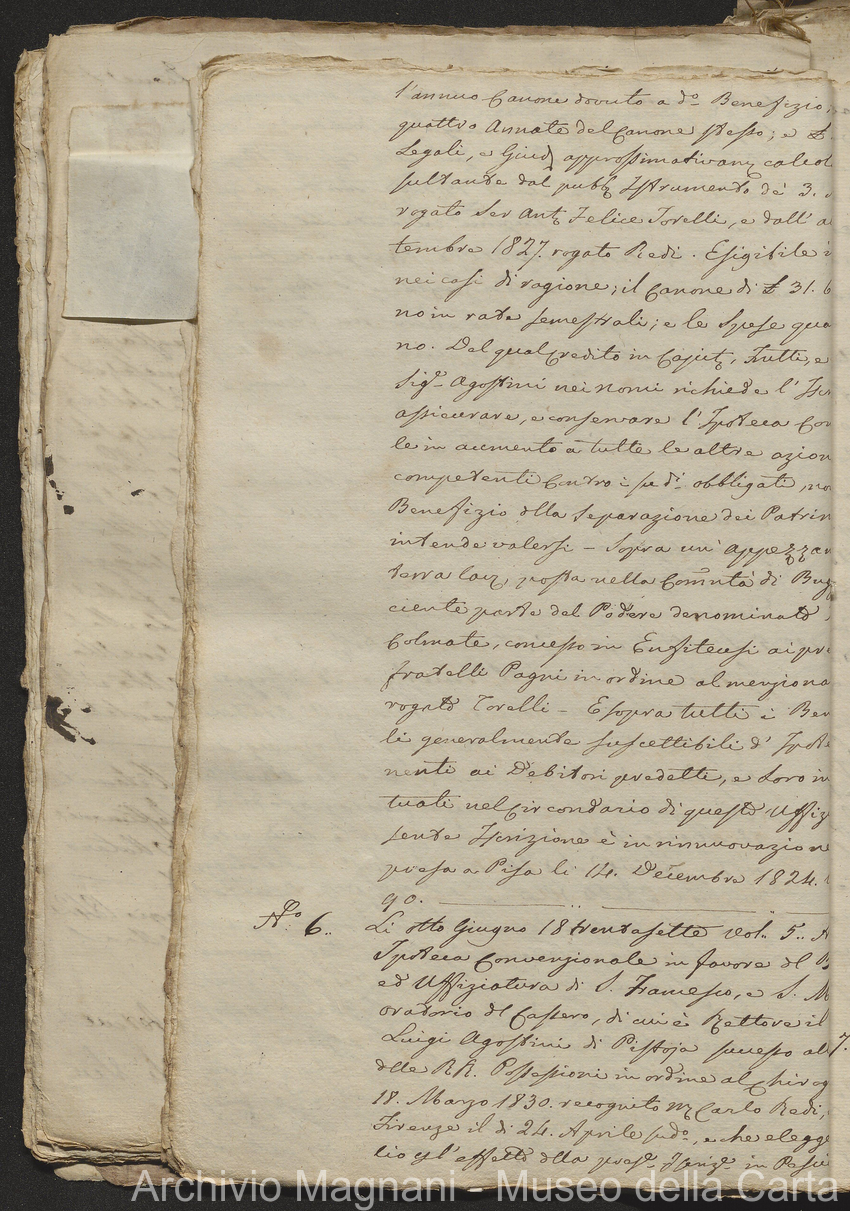 l'annuo Canone dovuto a d.o Benefizio;
quattro Annate del Canone stesso; e £.
Legali, e Giud. approssimativam. calcol
sultante dal pubb. Istrumento de' 3.
rogato Ser Ant. Felice Torelli, e dall' a
tembre 1827. rogato Redi. Esigibile i
nei casi di ragione; il Canone di £ 31. 6
no in rate semestrali; e le Spese qua
no. Del qual Credito in Capit., Frutti, e
Sig.e Agostini nei nomi richiede l' Iscr
assicurare, e conservare l' Ipoteca Con
le in aumento a tutte le altre azion
competenti Contro i sud.i obbligati, no
Benefizio dlla Separazione dei Patrim
intende valersi - Sopra un' Appezzam
terra lav. posta nella Com̃utà di Bug
ciente parte del Podere denominato
Colmate, concesso in Enfiteusi ai pre
fratelli Pagni in ordine al menziona
rogato Torelli - E sopra tutti i Ben
li generalmente suscettibili d' Ipote
nenti ai Debitori predetti, e Loro in
tuati nel Circondario di questo Uffiz
sente Iscrizione è in rinnuovazione
presa a Pisa li 14. Decembre 1824.
90.
N.o 6.. Li otto Giugno 18 trentasette vol. 5..
Ipoteca Convenzionale in favore dl B
ed Uffiziatura di S. Francesco, e S. M
oratorio dl Castero, di cui è Rettore il
Luigi Agostini di Pistoja successo al
dlle RR. Possessioni in ordine al Chirog
18. Marzo 1830. recognito Carlo Redi,
Firenze il dì 24. Aprile sud.o, e che elegge
lio p l'effetto dlla pres.e Iscriz.e in Pescia
7.
Archivio Magnani - Museo della Carta